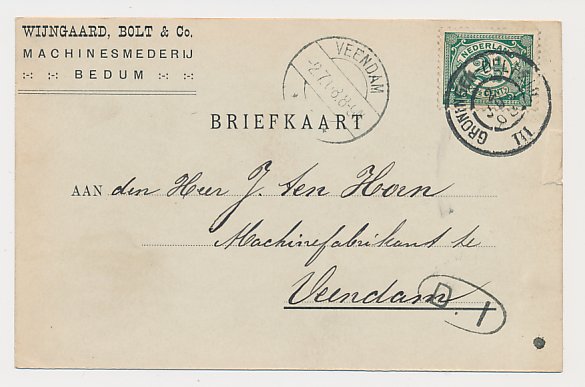 WIJNGAARD, BOLT & Co.
MACHINESMEDERIJ
BEDUM
VEENDAM
NEDERLAND
III
BRIEFKAART
AAN den Heer J. ten Horn
Machinefabrikant te
Veendam
D.1